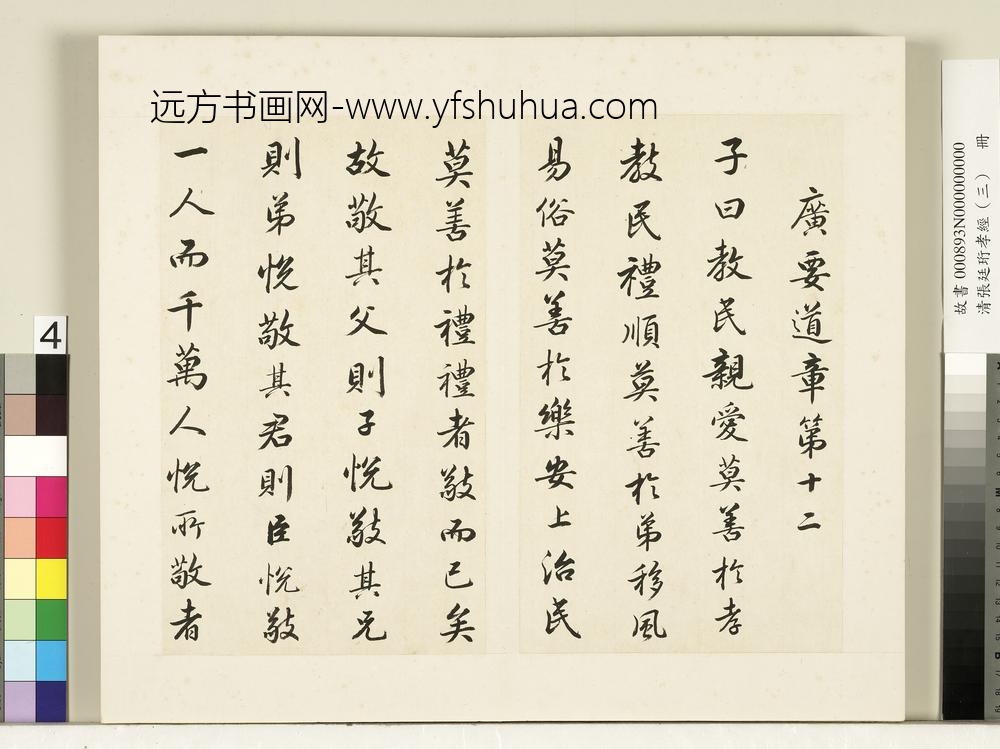 远方书画网-www.yfshuhua.com
廣要道章第十二
子曰教民親愛莫善於孝
教民禮順莫善於弟移風
易俗莫善於樂安上治民
莫善於禮禮者敬而已矣
故敬其父則子悅敬其兄
則弟悅敬其君則臣悅敬
一人而千萬人悅所敬者
故書000893N000000000
清張廷珩孝經(三) 冊
4